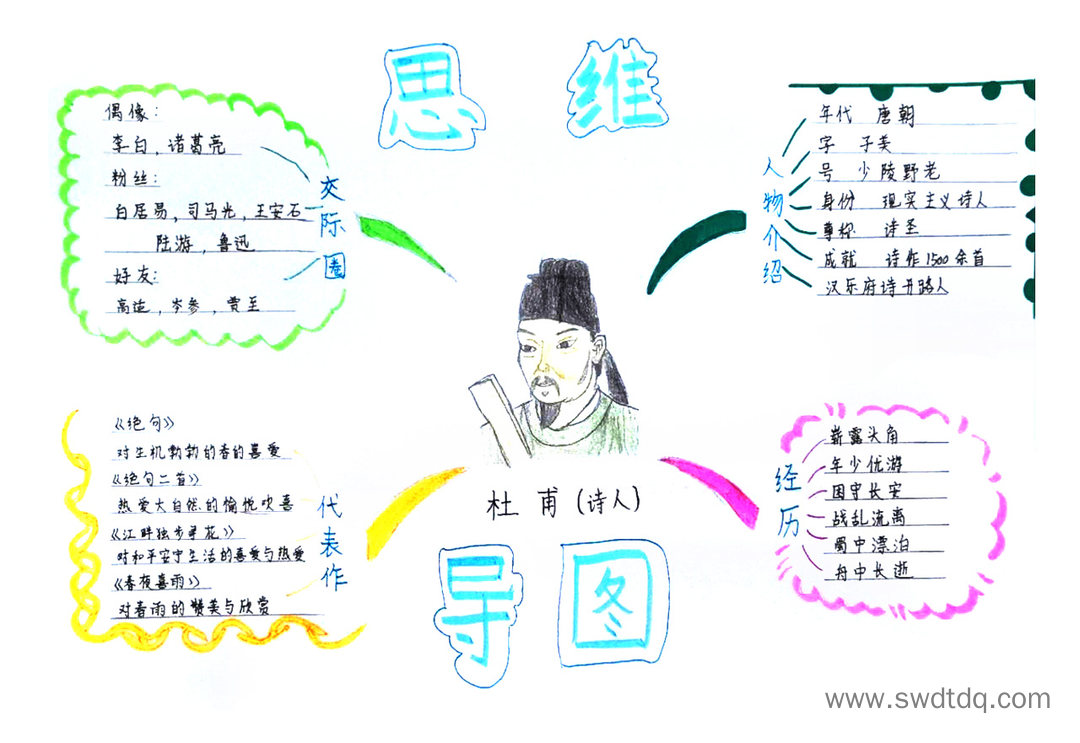 思维
偶像：
李白，诸葛亮
粉丝：
白居易，司马光，王安石
陆游，鲁迅
好友：
高适，岑参，贾至
交际圈
人物介绍
年代 唐朝
字 子美
号 少陵野老
身份 现实主义诗人
尊称 诗圣
成就 诗作1500余首
汉乐府诗开路人
《绝句》
对生机勃勃的春的喜爱
《绝句二首》
热爱大自然的愉悦欢喜
《江畔独步寻花》
对和平安宁生活的喜爱与热爱
《春夜喜雨》
对春雨的赞美与欣赏
代表作
杜甫（诗人）
经历
崭露头角
年少优游
困守长安
战乱流离
蜀中漂泊
舟中长逝
导图
www.swdtdq.com